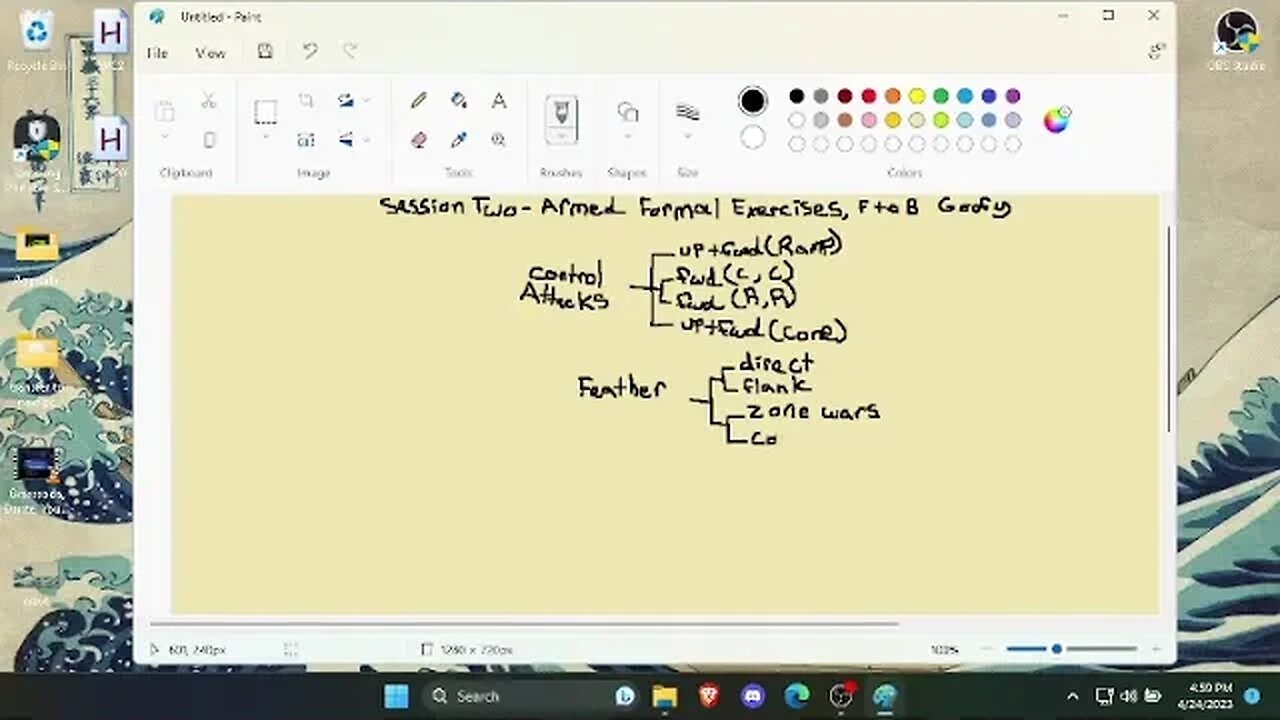 Untitled - Paint
File View
Clipboard
Image
Tools
Brushes
Shapes
Size
Colors
Recycle Bin
OBS Studio
Session Two - Armed Formal Exercises, F to B Goofy
Control Attacks
up+fwd (Ramp)
fwd (C, C)
fwd (R, R)
up+fwd (Cone)
Feather
direct
flank
zone wars
Co
1280 × 720px
100%
Search
4:59 PM
4/24/2023